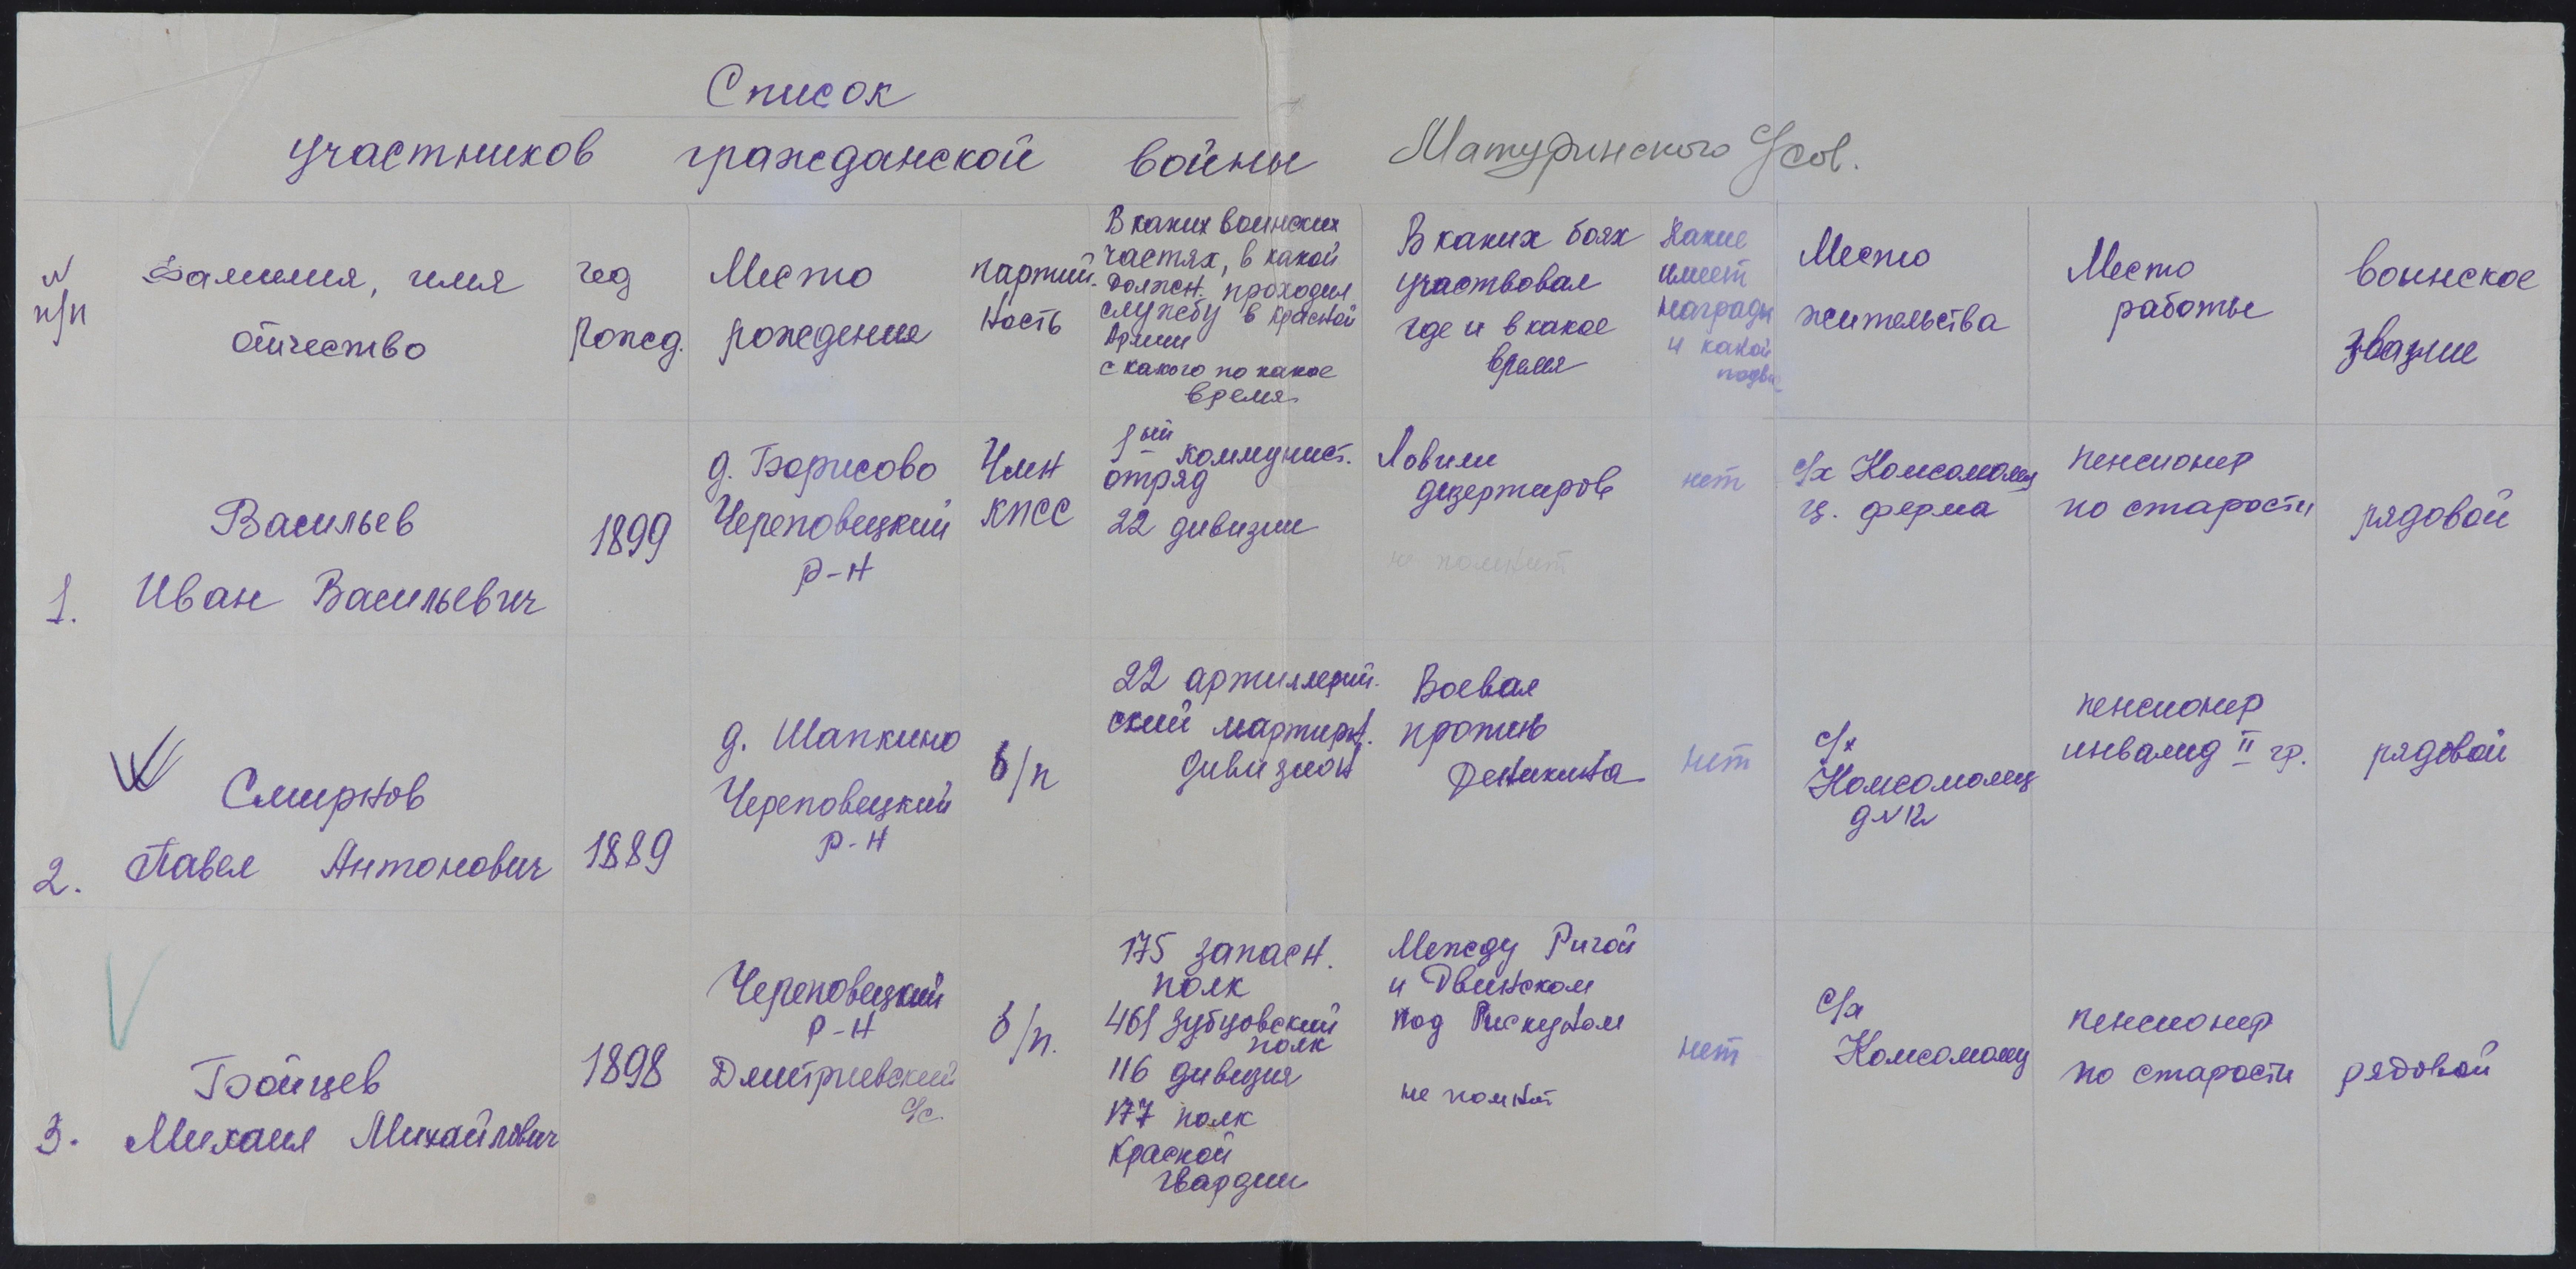 Список
участников гражданской войны Матуринского с/сов.
№ п/п
Фамилия, имя
отчество
год
рожд.
Место
рождения
партий-
ность
В каких воинских
частях, в какой
должн. проходил
службу в Красной
Армии
с какого по какое
время
В каких боях
участвовал
где и в какое
время
Какие
имеет
награды
и какой
Место
жительства
Место
работы
воинское
звание
1.
Васильев
Иван Васильевич
1899
д. Борисово
Череповецкий
р-н
Член
КПСС
1ый коммунист.
отряд
22 дивизии
Ловили
дезертиров
не помнит
нет
с/х Комсомолец
ц. ферма
пенсионер
по старости
рядовой
2.
Смирнов
Павел Антонович
1889
д. Шапкино
Череповецкий
р-н
б/п
22 артиллерий-
ский мортирн.
дивизион
Воевал
против
Деникина
нет
с/х
Комсомолец
пенсионер
инвалид II гр.
рядовой
3.
Бойцев
Михаил Михайлович
1898
Череповецкий
р-н
Дмитриевский
с/с
б/п.
175 запасн.
полк
461 Зубцовский
полк
116 дивизия
177 полк
Красной
гвардии
Между Ригой
и Двинском
под
не помнит
нет
с/х
Комсомолец
пенсионер
по старости
рядовой